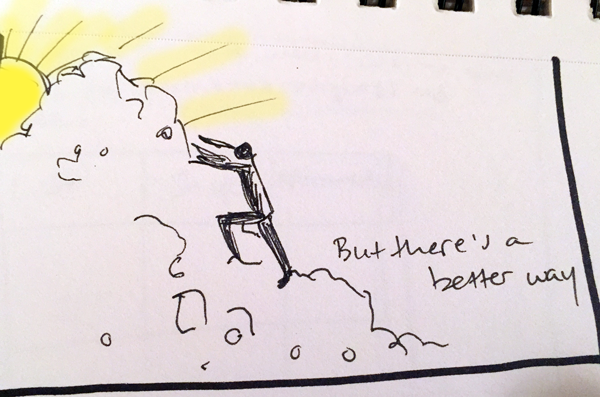 But there's a
better way